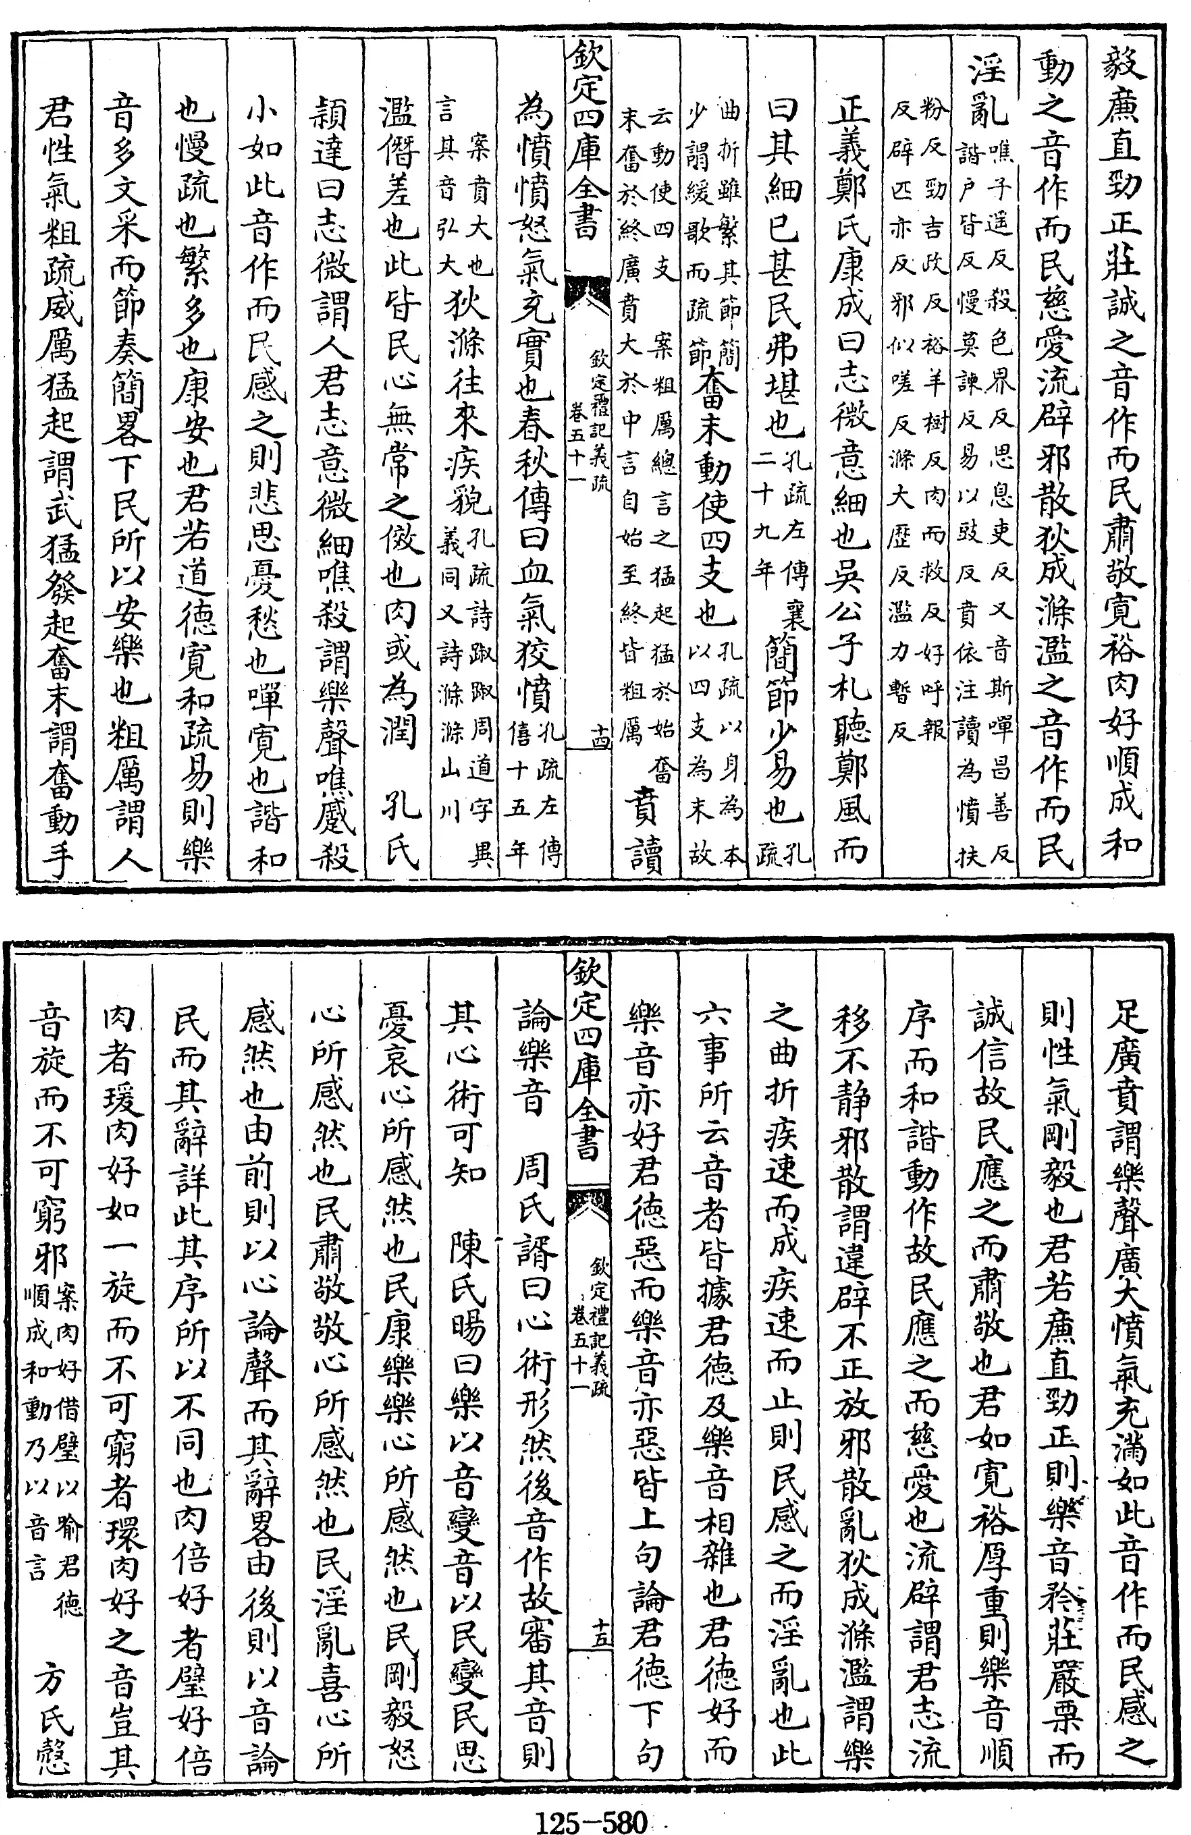 毅廉直勁正莊誠之音作而民肅敬寛裕肉好順成和
動之音作而民慈愛流辟邪散狄成滌濫之音作而民
淫亂噍子遥反殺色界反思息吏反又音斯嘽昌善反
諧户皆反慢莫諫反易以豉反賁依注讀為憤扶
粉反勁吉政反裕羊樹反肉而救反好呼報
反辟匹亦反邪似嗟反滌大歴反濫力暫反
正義鄭氏康成曰志微意細也吳公子札聽鄭風而
曰其細已甚民弗堪也孔疏左傳襄
二十九年簡節少易也孔疏
曲折雖繁其節簡
少謂緩歌而疏節奮末動使四支也孔疏以身為本
以四支為末故
云動使四支
末奮於終廣賁大於中言自始至終皆粗厲
案粗厲總言之猛起猛於始奮
賁讀
欽定四庫全書
欽定禮記義疏
卷五十一
十四
為憤憤怒氣充實也春秋傳曰血氣狡憤孔疏左傳
僖十五年
案賁大也
言其音弘大狄滌往來疾貌孔疏詩踧踧周道字異
義同又詩滌滌山川
濫僭差也此皆民心無常之傚也肉或為潤　孔氏
穎達曰志微謂人君志意微細噍殺謂樂聲噍蹙殺
小如此音作而民感之則悲思憂愁也嘽寛也諧和
也慢疏也繁多也康安也君若道德寛和疏易則樂
音多文采而節奏簡畧下民所以安樂也粗厲謂人
君性氣粗疏威厲猛起謂武猛發起奮末謂奮動手
足廣賁謂樂聲廣大憤氣充滿如此音作而民感之
則性氣剛毅也君若廉直勁正則樂音矜莊嚴栗而
誠信故民應之而肅敬也君如寛裕厚重則樂音順
序而和諧動作故民應之而慈愛也流辟謂君志流
移不靜邪散謂違辟不正放邪散亂狄成滌濫謂樂
之曲折疾速而成疾速而止則民感之而淫亂也此
六事所云音者皆據君德及樂音相雜也君德好而
樂音亦好君德惡而樂音亦惡皆上句論君德下句
欽定四庫全書
欽定禮記義疏
卷五十一
十五
論樂音　周氏諝曰心術形然後音作故審其音則
其心術可知　陳氏暘曰樂以音變音以民變民思
憂哀心所感然也民康樂樂心所感然也民剛毅怒
心所感然也民肅敬敬心所感然也民淫亂喜心所
感然也由前則以心論聲而其辭畧由後則以音論
民而其辭詳此其序所以不同也肉倍好者璧好倍
肉者瑗肉好如一旋而不可窮者環肉好之音豈其
音旋而不可窮邪案肉好借璧以喻君德
順成和動乃以音言　方氏慤
125-580